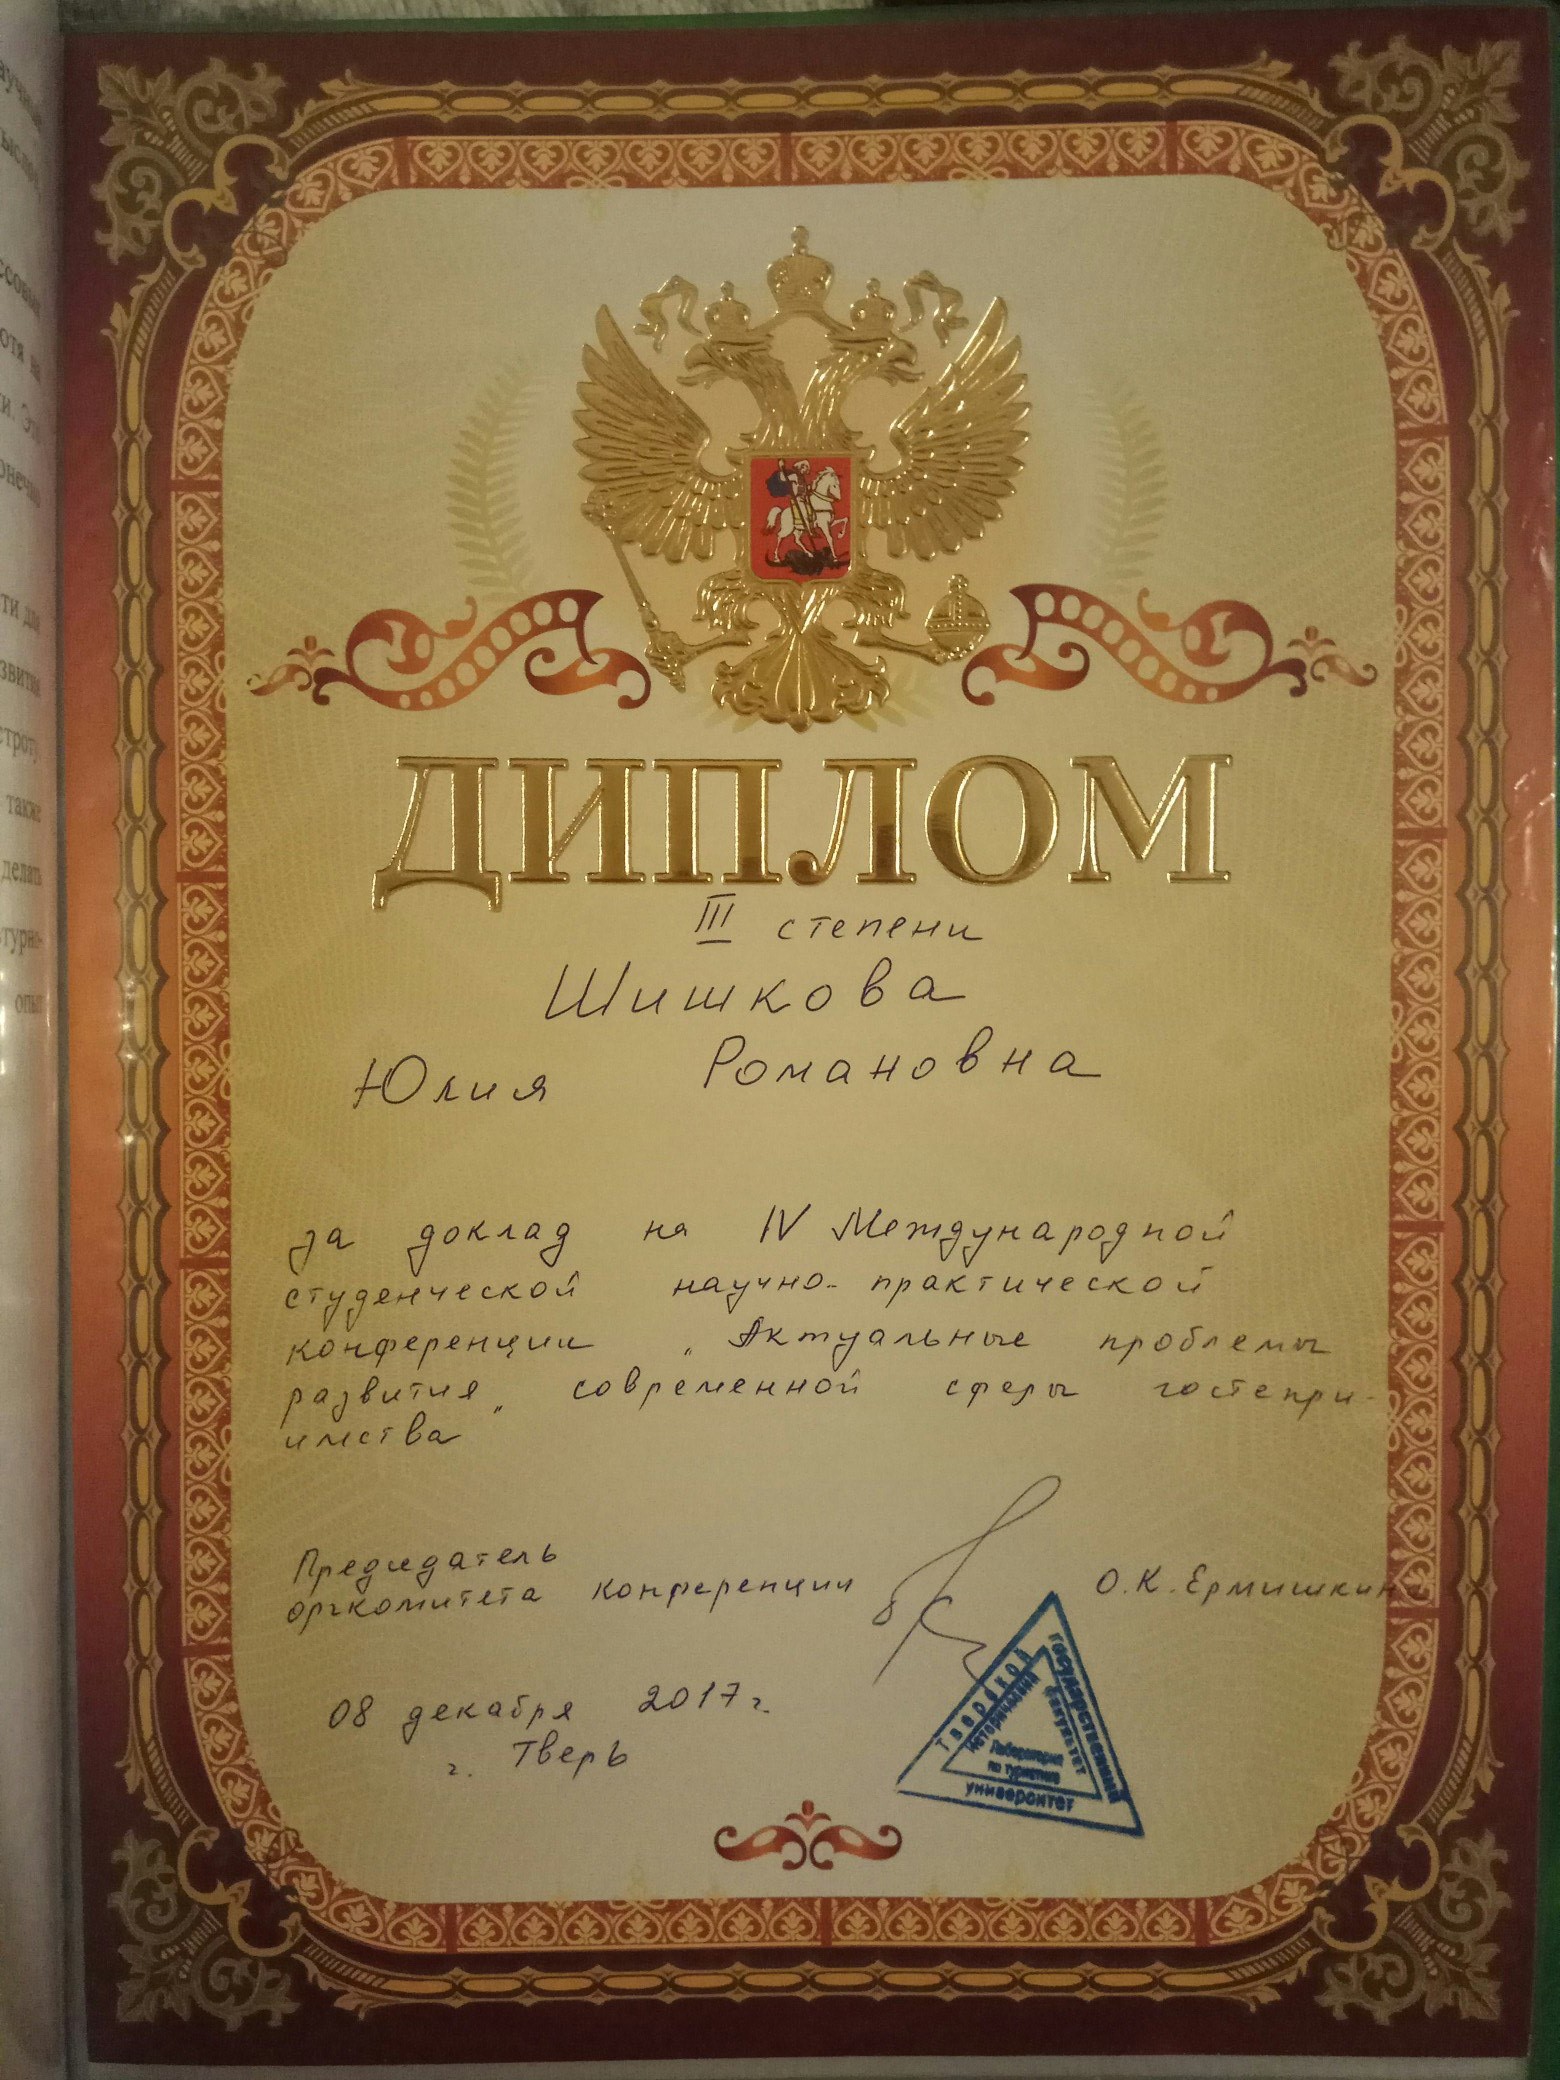 ДИПЛОМ
III степени
Шишкова
Юлия Романовна
за доклад на IV Международной
студенческой научно-практической
конференции „Актуальные проблемы
развития современной сферы гостепри-
имства"
Председатель
оргкомитета конференции О.К. Ермишкина
08 декабря 2017 г.
г. Тверь
Тверской
государственный
университет
Исторический
факультет
Лаборатория
по туризму
также
делать
опыт